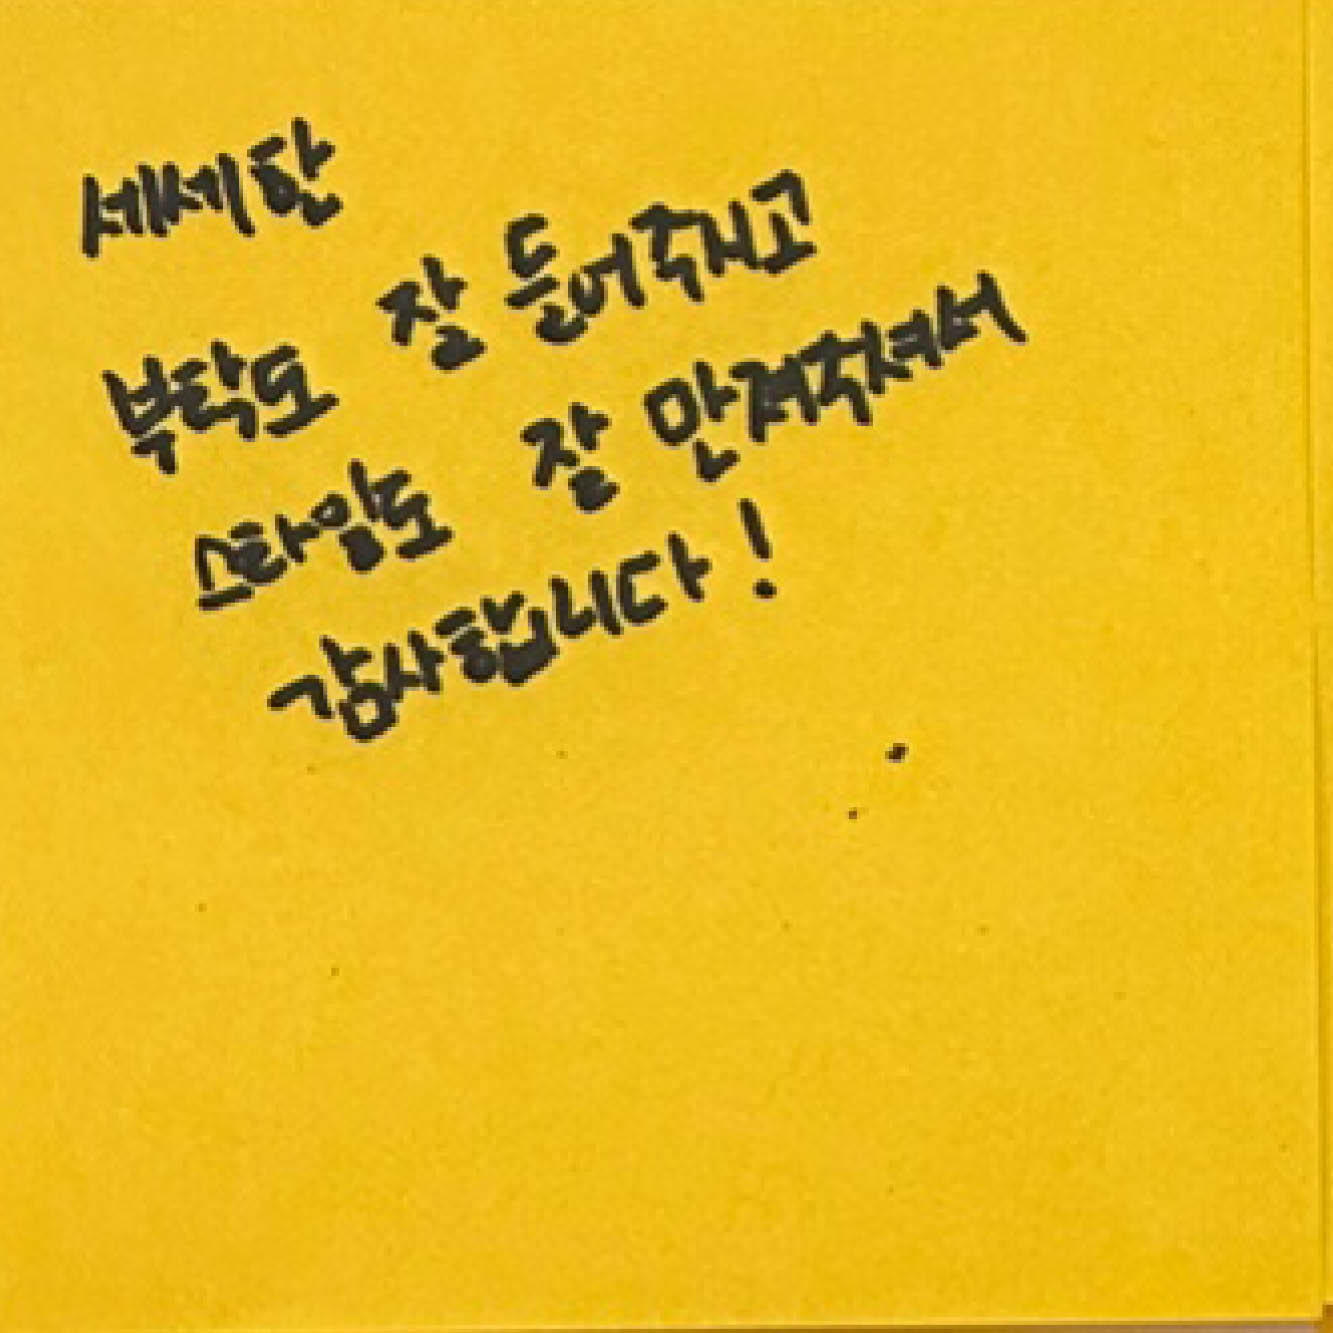 세세한
부탁도 잘 들어주시고
스타일도 잘 만져주셔서
감사합니다!